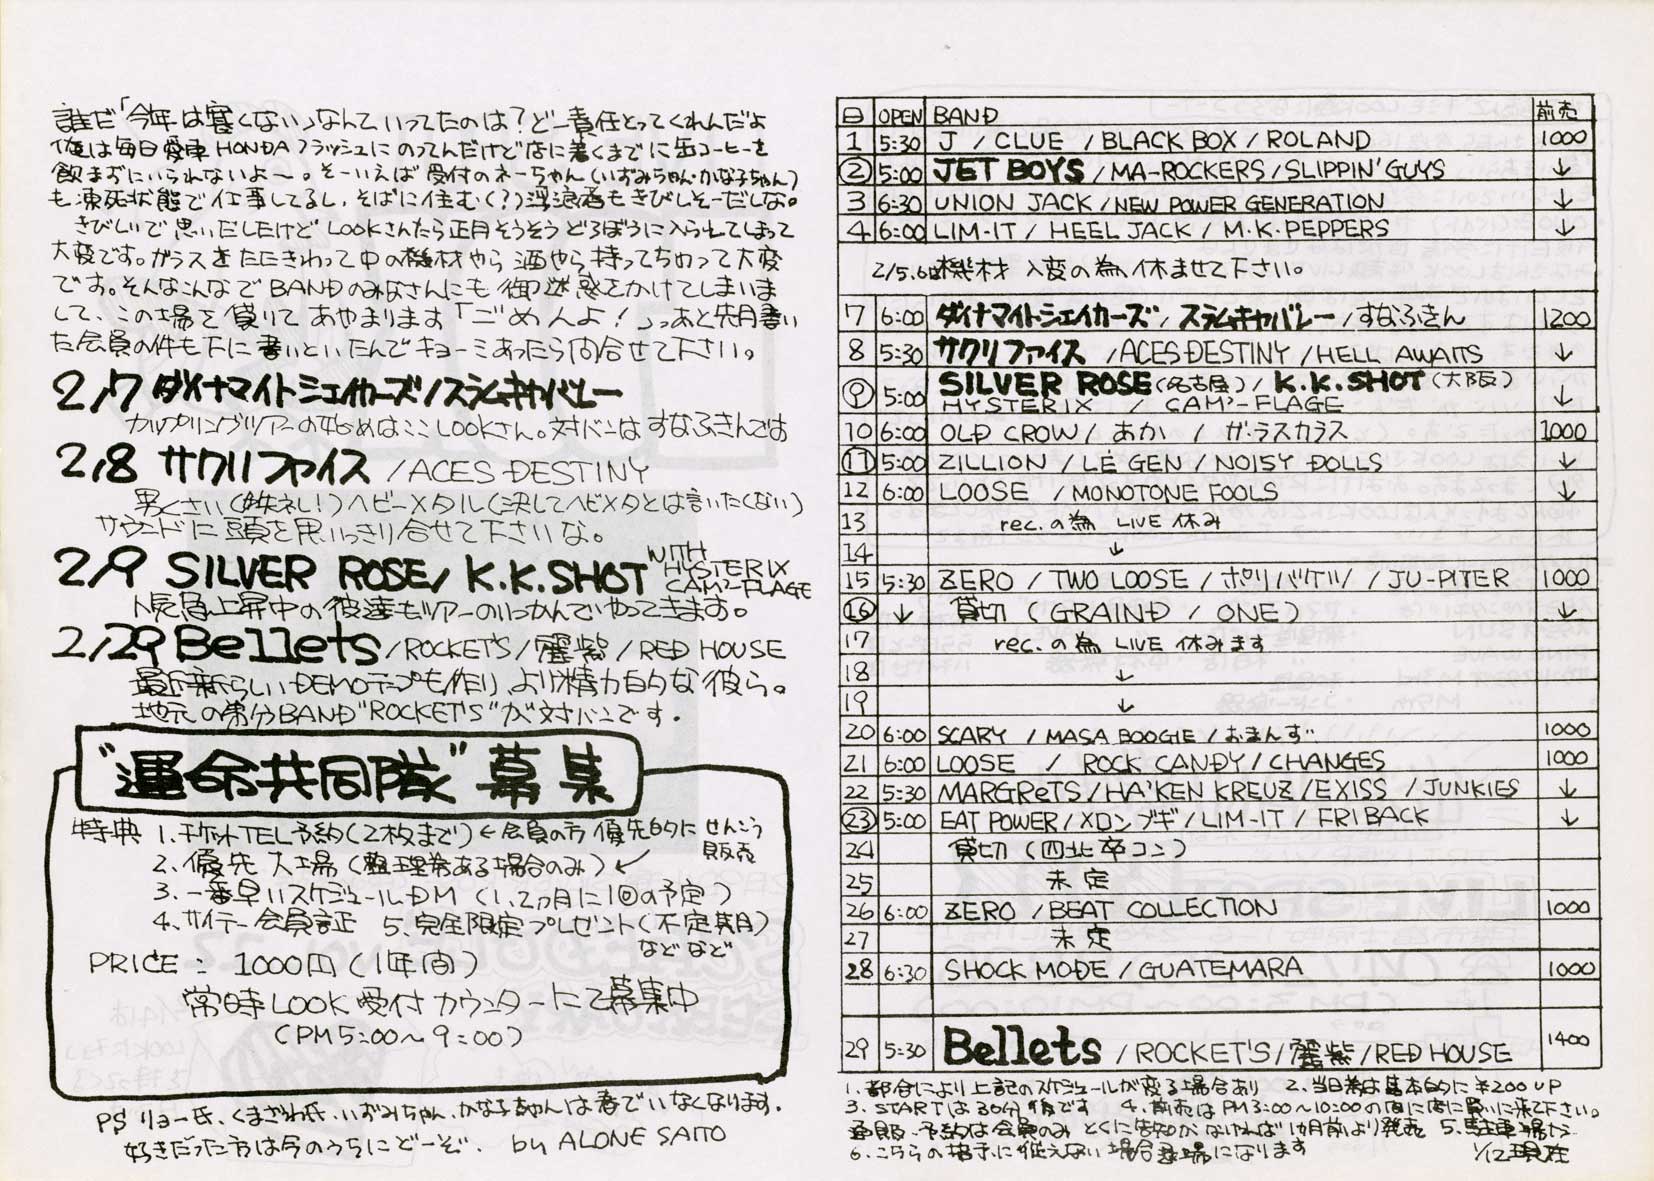 誰だ「今年は寒くない」なんていってたのは？どー責任とってくれんだよ
俺は毎日愛車HONDAフラッシュにのってんだけど店に着くまでに缶コーヒーを
飲まずにいられないよ〜。そーいえば受付のネーちゃん(いずみちゃん・かな子ちゃん)
も凍死状態で仕事してるし、そばに住む(？)浮浪者もきびしそーだしな。
きびしいで思いだしたけどLOOKさんたら正月そうそうどろぼうに入られてしまって
大変です。ガラスをたたきわって中の機材やら酒やら持ってちゃって大変
です。そんなこんなでBANDのみなさんにも御迷惑をかけてしまいま
して、この場を借りてあやまります「ごめんよ！」っあと先月書い
た会員の件も下に書いといたんでキョーミあったら問合せて下さい。
2/7 ダイナマイトシェイカーズ/スラムキャバレー
カップリングツアーの始めはここLOOKさん。対バンはすなふきんでは
2/8 サクリファイス /ACES DESTINY
男くさい(妹ネし!)ヘビーメタル(決してヘビメタとは言いたくない)
サウンドに頭を思いっきり合せて下さいな。
2/9 SILVER ROSE/ K.K.SHOT WITH HYSTERIX CAM'-FLAGE
人気急上昇中の彼達もツアーのいっかんでやってきます。
2/29 Bellets /ROCKET'S/麗紫/RED HOUSE
最近新らしいDEMOテープも作り、より精力的な彼ら。
地元の兄弟分BAND"ROCKET'S"が対バンです。
"運命共同隊"募集
特典 1.チケットTEL予約(2枚まで)←会員の方優先的にせんこう販売
2.優先入場(整理券ある場合のみ)↙
3.一番早いスケジュールDM(1、2ヵ月に1回の予定)
4.サイテー会員証 5.完全限定プレゼント(不定期)
などなど
PRICE: 1000円(1年間)
常時LOOK受付カウンターにて募集中
(PM5:00〜9:00)
PS リョー氏、くまざわ氏、いずみちゃん、かな子ちゃんは春でいなくなります。
好きだった方は今のうちにどーぞ. by ALONE SAITO
日 OPEN BAND 前売
1 5:30 J / CLUE / BLACK BOX / ROLAND 1000
② 5:00 JET BOYS / MA-ROCKERS / SLIPPIN' GUYS ↓
3 6:30 UNION JACK / NEW POWER GENERATION ↓
4 6:00 LIM-IT / HEEL JACK / M.K.PEPPERS ↓
2/5.6は機材入変の為、休ませて下さい。
7 6:00 ダイナマイトシェイカーズ/ スラムキャバレー/すなふきん 1200
8 5:30 サクリファイス /ACES DESTINY /HELL AWAITS ↓
⑨ 5:00 SILVER ROSE(名古屋)/ K.K.SHOT(大阪) ↓
HYSTERIX / CAM'-FLAGE
10 6:00 OLD CROW / あか / ザ・ラスカラス 1000
⑪ 5:00 ZILLION / LE GEN / NOISY DOLLS ↓
12 6:00 LOOSE / MONOTONE FOOLS ↓
13 rec.の為 LIVE 休み
14 ↓
15 5:30 ZERO / TWO LOOSE / ポリバケツ / JU-PITER 1000
⑯ ↓ 貸切 (GRAIND / ONE) ↓
17 rec.の為 LIVE 休みます
18 ↓
19 ↓
20 6:00 SCARY / MASA BOOGIE / おまんず 1000
21 6:00 LOOSE / ROCK CANDY / CHANGES 1000
22 5:30 MARGReTS / HA'KEN KREUZ / EXISS / JUNKIES ↓
㉓ 5:00 EAT POWER / メロンブギ / LIM-IT / FRI BACK ↓
24 貸切 (四北卒コン)
25 未定
26 6:00 ZERO / BEAT COLLECTION 1000
27 未定
28 6:30 SHOCK MODE / GUATEMARA 1000
29 5:30 Bellets / ROCKET'S / 麗紫 / RED HOUSE 1400
1.都合により上記のスケジュールが変る場合あり 2.当日券は基本的に¥200UP
3.STARTは30分後です 4.前売はPM3:00〜10:00の間に店に買いに来て下さい。
通販、予約は会員のみ とくに告知がなければ1ヵ月前より発売 5.駐車場なし
6.こちらの指示に従えない場合退場になります 1/12現在